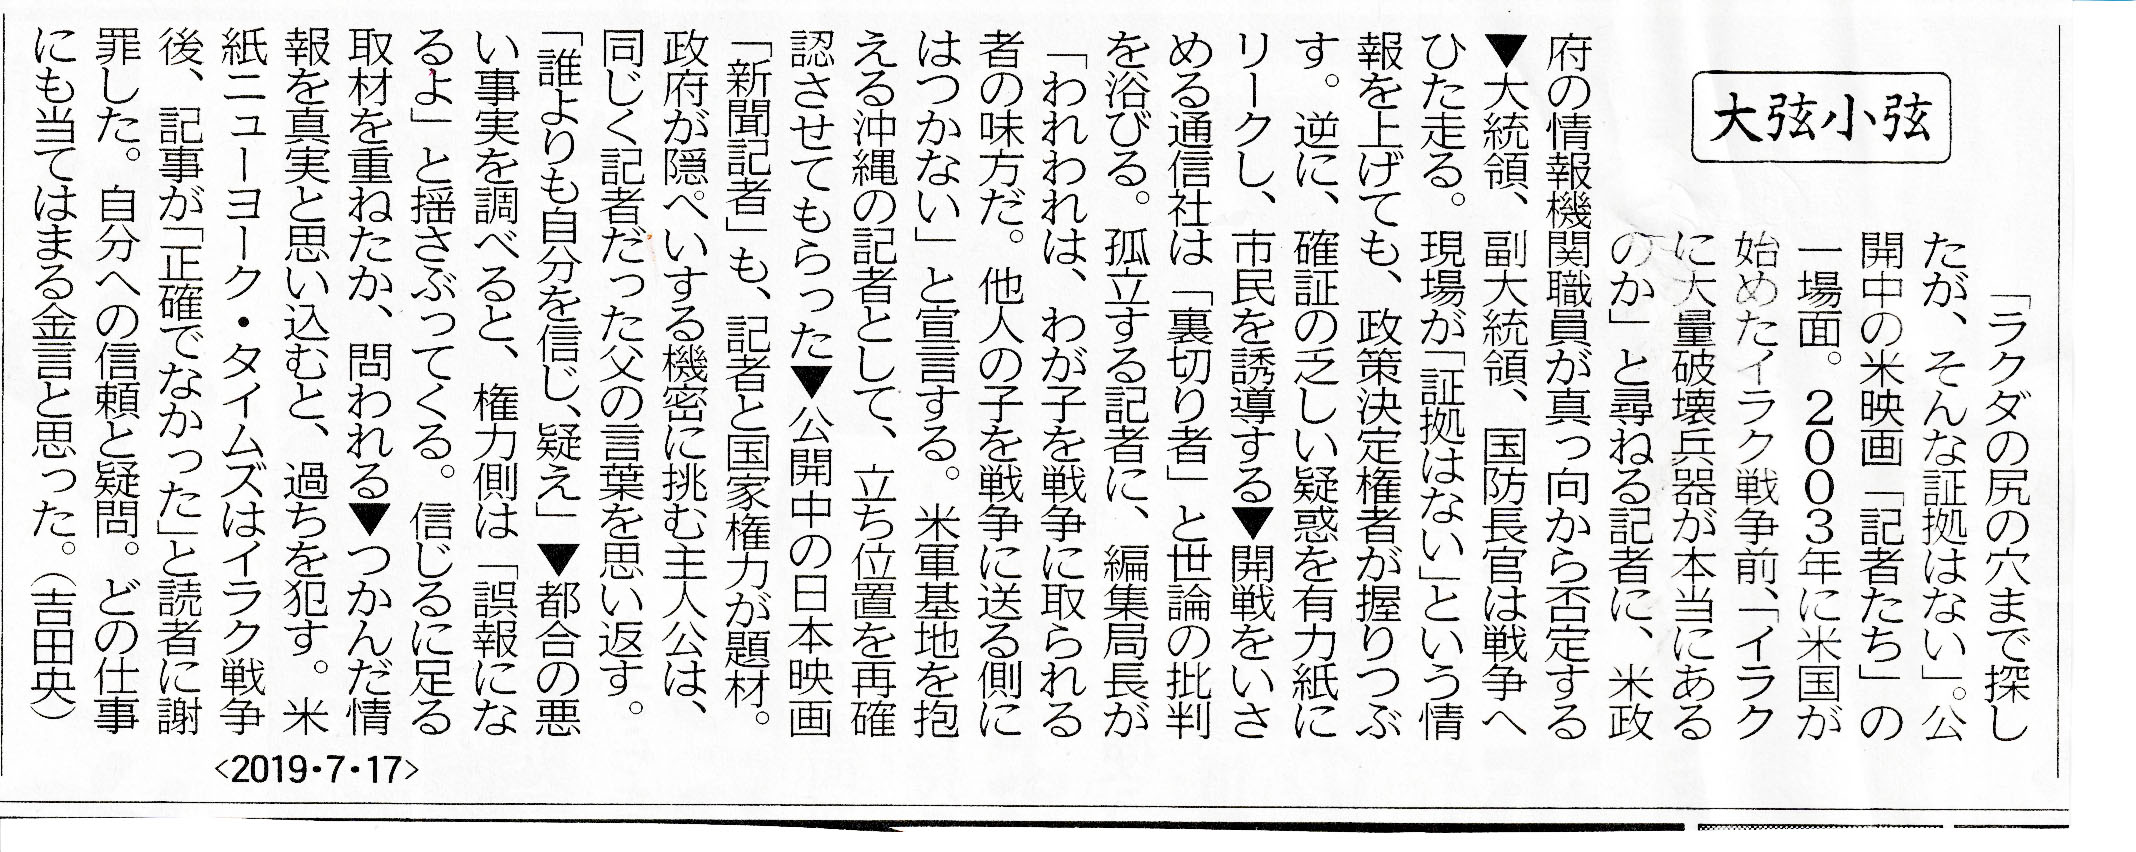 大弦小弦
「ラクダの尻の穴まで探し
たが、そんな証拠はない」。公
開中の米映画「記者たち」の
一場面。２００３年に米国が
始めたイラク戦争前、「イラク
に大量破壊兵器が本当にある
のか」と尋ねる記者に、米政
府の情報機関職員が真っ向から否定する
▼大統領、副大統領、国防長官は戦争へ
ひた走る。現場が「証拠はない」という情
報を上げても、政策決定権者が握りつぶ
す。逆に、確証の乏しい疑惑を有力紙に
リークし、市民を誘導する▼開戦をいさ
める通信社は「裏切り者」と世論の批判
を浴びる。孤立する記者に、編集局長が
「われわれは、わが子を戦争に取られる
者の味方だ。他人の子を戦争に送る側に
はつかない」と宣言する。米軍基地を抱
える沖縄の記者として、立ち位置を再確
認させてもらった▼公開中の日本映画
「新聞記者」も、記者と国家権力が題材。
政府が隠ぺいする機密に挑む主人公は、
同じく記者だった父の言葉を思い返す。
「誰よりも自分を信じ、疑え」▼都合の悪
い事実を調べると、権力側は「誤報にな
るよ」と揺さぶってくる。信じるに足る
取材を重ねたか、問われる▼つかんだ情
報を真実と思い込むと、過ちを犯す。米
紙ニューヨーク・タイムズはイラク戦争
後、記事が「正確でなかった」と読者に謝
罪した。自分への信頼と疑問。どの仕事
にも当てはまる金言と思った。（吉田央）
<2019・7・17>